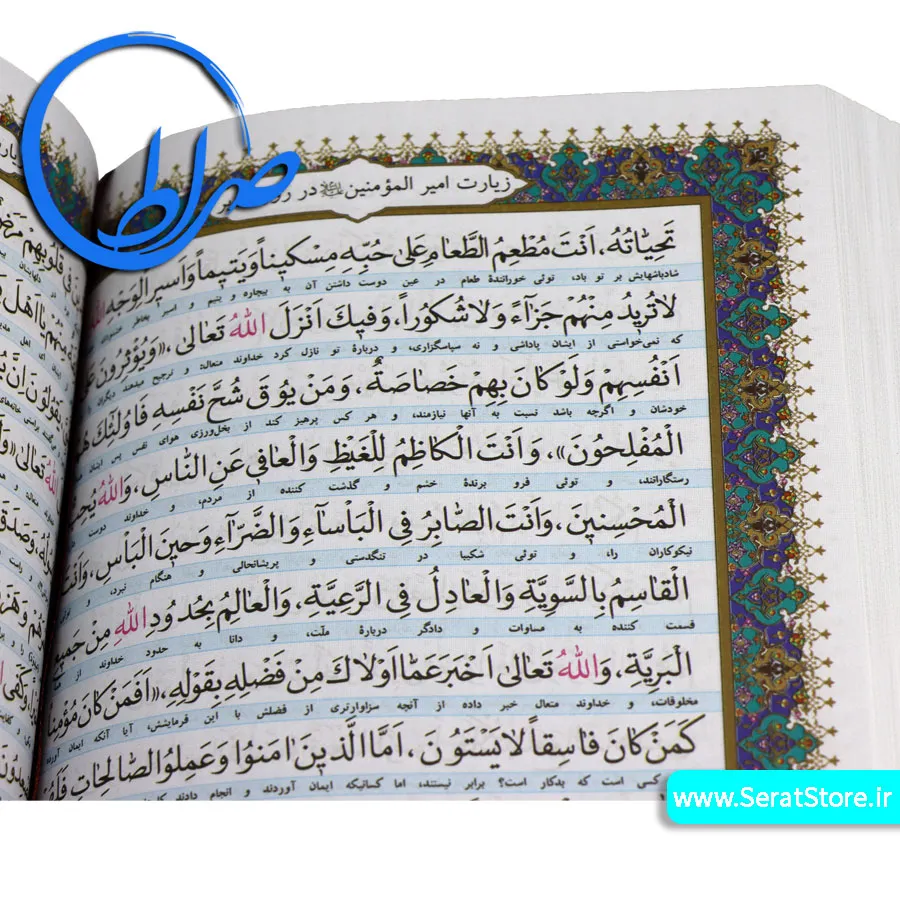 صراط
زیارت امیر المؤمنین در
تَحِیّاتُهُ، اَنْتَ مُطْعِمُ الطَّعامِ عَلیٰ حُبِّهِ مِسْکیناً وَ یَتیماً وَ اَسیراً لِوَجْهِ اللهِ
شادباشهایش بر تو باد، توئی خورانندهٔ طعام در عین دوست داشتن آن به بیچاره و یتیم و اسیر بخاطر
لا تُریدُ مِنْهُمْ جَزآءً وَ لا شُکُوراً، وَ فیكَ اَنْزَلَ اللهُ تَعالیٰ، «وَ یُؤْثِرُونَ
که نمی‌خواستی از ایشان پاداشی و نه سپاسگزاری، و دربارهٔ تو نازل کرد خداوند متعال: و ترجیح میدهند دیگران را
اَنْفُسِهِمْ وَلَوْ کانَ بِهِمْ خَصاصَةٌ، وَ مَنْ یُوقَ شُحَّ نَفْسِهِ فَاُولٰئِكَ
خودشان و اگرچه باشد نسبت به آنها نیازمند، و هر کس پرهیز کند از بخل‌ورزی هوای نفس پس ایشان
الْمُفْلِحُونَ»، وَ اَنْتَ الْکاظِمُ لِلْغَیْظِ وَ الْعافی عَنِ النّاسِ، وَاللهُ
رستگارانند، و توئی فرو برندهٔ خشم و گذشت کننده از مردم، و خداوند دوست
الْمُحْسِنینَ، وَ اَنْتَ الصّابِرُ فِی الْبَأْسآءِ وَ الضَّرّآءِ وَ حینَ الْبَأْسِ، وَ اَنْتَ
نیکوکاران را، و توئی شکیبا در تنگدستی و پریشانحالی و هنگام نبرد، و
الْقاسِمُ بِالسَّوِیَّةِ وَ الْعادِلُ فِی الرَّعِیَّةِ، وَالْعالِمُ بِحُدُودِ اللهِ مِنْ جَمیعِ
قسمت کننده به مساوات و دادگر دربارهٔ ملّت، و دانا به حدود خداوند از
الْبَرِیَّةِ، وَاللهُ تَعالیٰ اَخْبَرَ عَمّا اَوْلاكَ مِنْ فَضْلِهِ بِقَوْلِهِ، «اَفَمَنْ کانَ مُؤْمِناً
مخلوقات، و خداوند متعال خبر داده از آنچه سزاوارتری از فضلش با این فرمایشش، آیا آنکه ایمان آورده
کَمَنْ کانَ فاسِقاً لا یَسْتَوُونَ، اَمَّا الَّذینَ اٰمَنُوا وَ عَمِلُوا الصّالِحاتِ
کسی است که بدکار است؟ برابر نیستند، اما کسانیکه ایمان آوردند و انجام دادند
www.SeratStore.ir